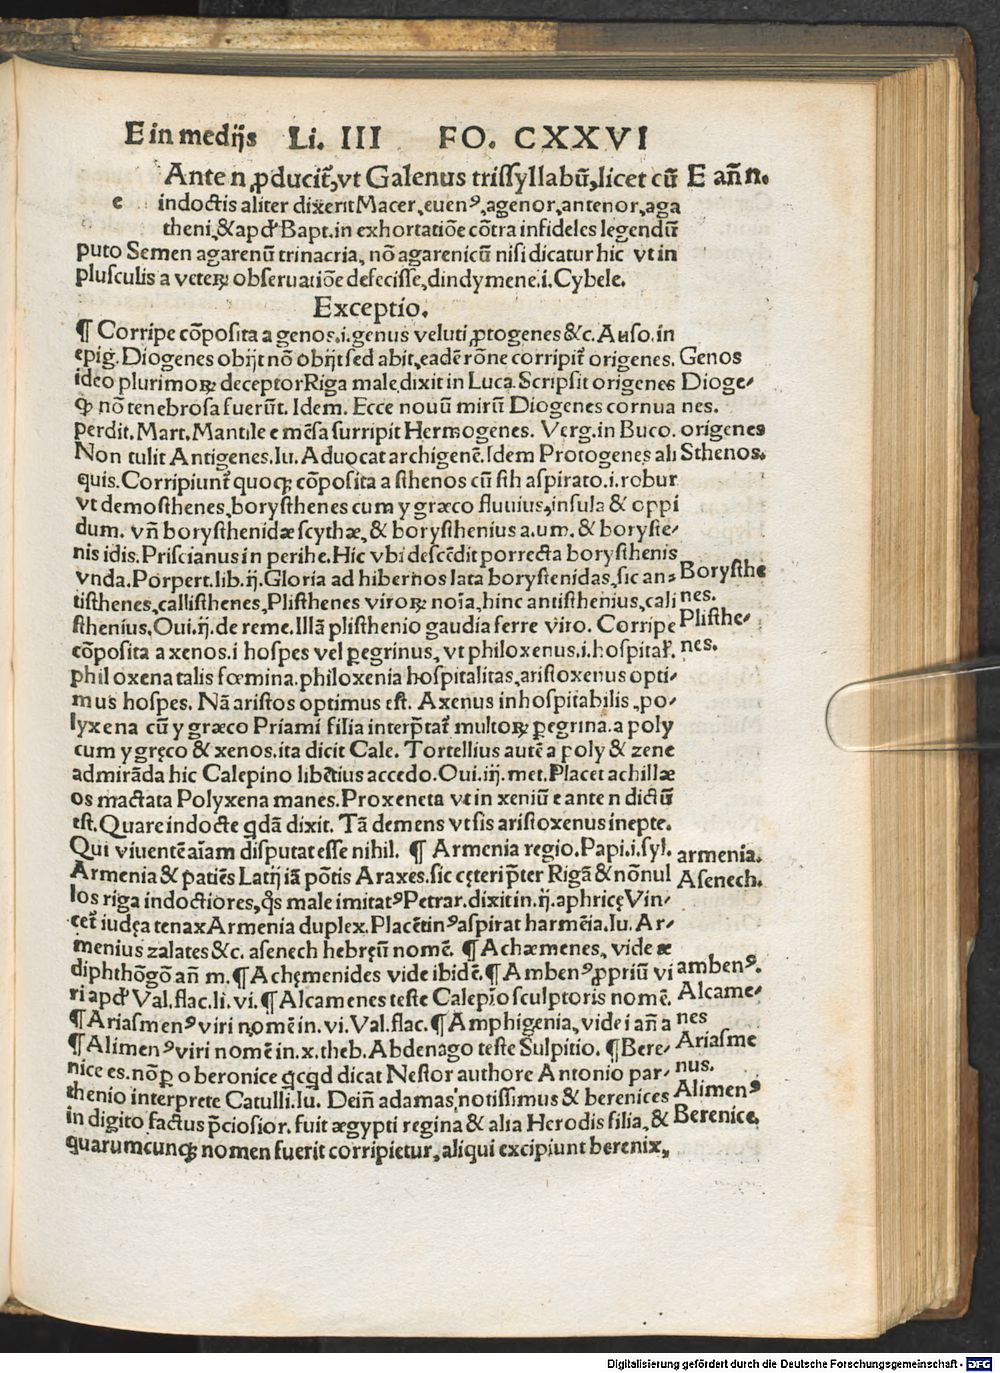 E in medijs Li. III FO. CXXVI
Ante n ꝓducit̃,vt Galenus trissyllabũ,licet cũ E añ n.
e indoctis aliter dixerit Macer,euenꝰ,agenor,antenor,aga
theni,&apd' Bapt.in exhortatiõe cõtra infideles legendũ
puto Semen agarenũ trinacria, nõ agarenicũ nisi dicatur hic vt in
plusculis a veteꝝ obseruatiõe defecisse,dindymene.i.Cybele.
Exceptio.
¶ Corripe cõposita a genos.i.genus veluti ꝓtogenes &c. Auso.in
epig. Diogenes obijt nõ obijt sed abit,eadẽ rõne corripit̃ origenes. Genos
ideo plurimoꝝ deceptor Riga male dixit in Luca. Scripsit origenes Dioge-
ꝙ nõ tenebrosa fuerũt. Idem. Ecce nouũ mirũ Diogenes cornua nes.
perdit. Mart. Mantile e mẽsa surripit Hermogenes. Verg.in Buco. origenes
Non tulit Antigenes.Iu. Aduocat archigenẽ.Idem Protogenes ali Sthenos.
quis.Corripiunt̃ quoqꝫ cõposita a sthenos cũ sth aspirato.i.robur
vt demosthenes,borysthenes cum y græco fluuius,insula & oppi
dum. vñ borysthenidæ scythæ, & borysthenius a.um. & boryste-
nis idis.Priscianus in perihe.Hic vbi descẽdit porrecta borysthenis
vnda.Porpert.lib.ij.Gloria ad hibernos lata borystenidas,sic an- Borysthe
tisthenes,callisthenes,Plisthenes viroꝝ noĩa,hinc antisthenius,cali nes.
sthenius.Oui.ij.de reme.Illã plisthenio gaudia ferre viro. Corripe Plisthe-
cõposita a xenos.i hospes vel ꝑegrinus, vt philoxenus.i.hospitaľ. nes.
philoxena talis fœmina.philoxenia hospitalitas,aristoxenus opti-
mus hospes. Nã aristos optimus est. Axenus inhospitabilis ,po-
lyxena cũ y græco Priami filia interp̃tat̃ multoꝝ ꝑegrina.a poly
cum y gręco & xenos.ita dicit Cale. Tortellius autẽ a poly & zene
admirãda hic Calepino libẽtius accedo.Oui.iij.met.Placet achillæ
os mactata Polyxena manes.Proxeneta vt in xeniũ e ante n dictũ
est.Quare indocte qdã dixit. Tã demens vt sis aristoxenus inepte.
Qui viuentẽ aĩam disputat esse nihil. ¶ Armenia regio.Papi.i.syl. armenia.
Armenia & patiẽs Latij iã põtis Araxes.sic cęteri p̃ter Rigã & nõnul Asenech.
los riga indoctiores,q̃s male imitatꝰPetrar.dixit in.ij.aphricę Vin-
cet̃ iudęa tenax Armenia duplex.Placẽtinꝰ aspirat harmẽia.Iu. Ar-
menius zalates &c. asenech hebręũ nomẽ. ¶ Achæmenes, vide æ
diphthõgõ añ m.¶ Achęmenides vide ibidẽ.¶ Ambenꝰ ꝓpriũ vi ambenꝰ.
ri apd' Val.flac.li.vi.¶ Alcamenes teste Calepĩo sculptoris nomẽ. Alcame-
¶ Ariasmenꝰ viri nomẽ in.vi.Val.flac.¶ Amphigenia, vide i añ a nes
¶ Alimenꝰ viri nomẽ in.x.theb.Abdenago teste Sulpitio. ¶ Bere- Ariasme
nice es.nõꝑ o beronice qcqd dicat Nestor authore Antonio par- nus.
thenio interprete Catulli.Iu. Deiñ adamas notissimus & berenices Alimenꝰ
in digito factus p̃ciosior. fuit ægypti regina & alia Herodis filia, & Berenice.
quarumcunqꝫ nomen fuerit corripietur,aliqui excipiunt berenix,
Digitalisierung gefördert durch die Deutsche Forschungsgemeinschaft - DFG